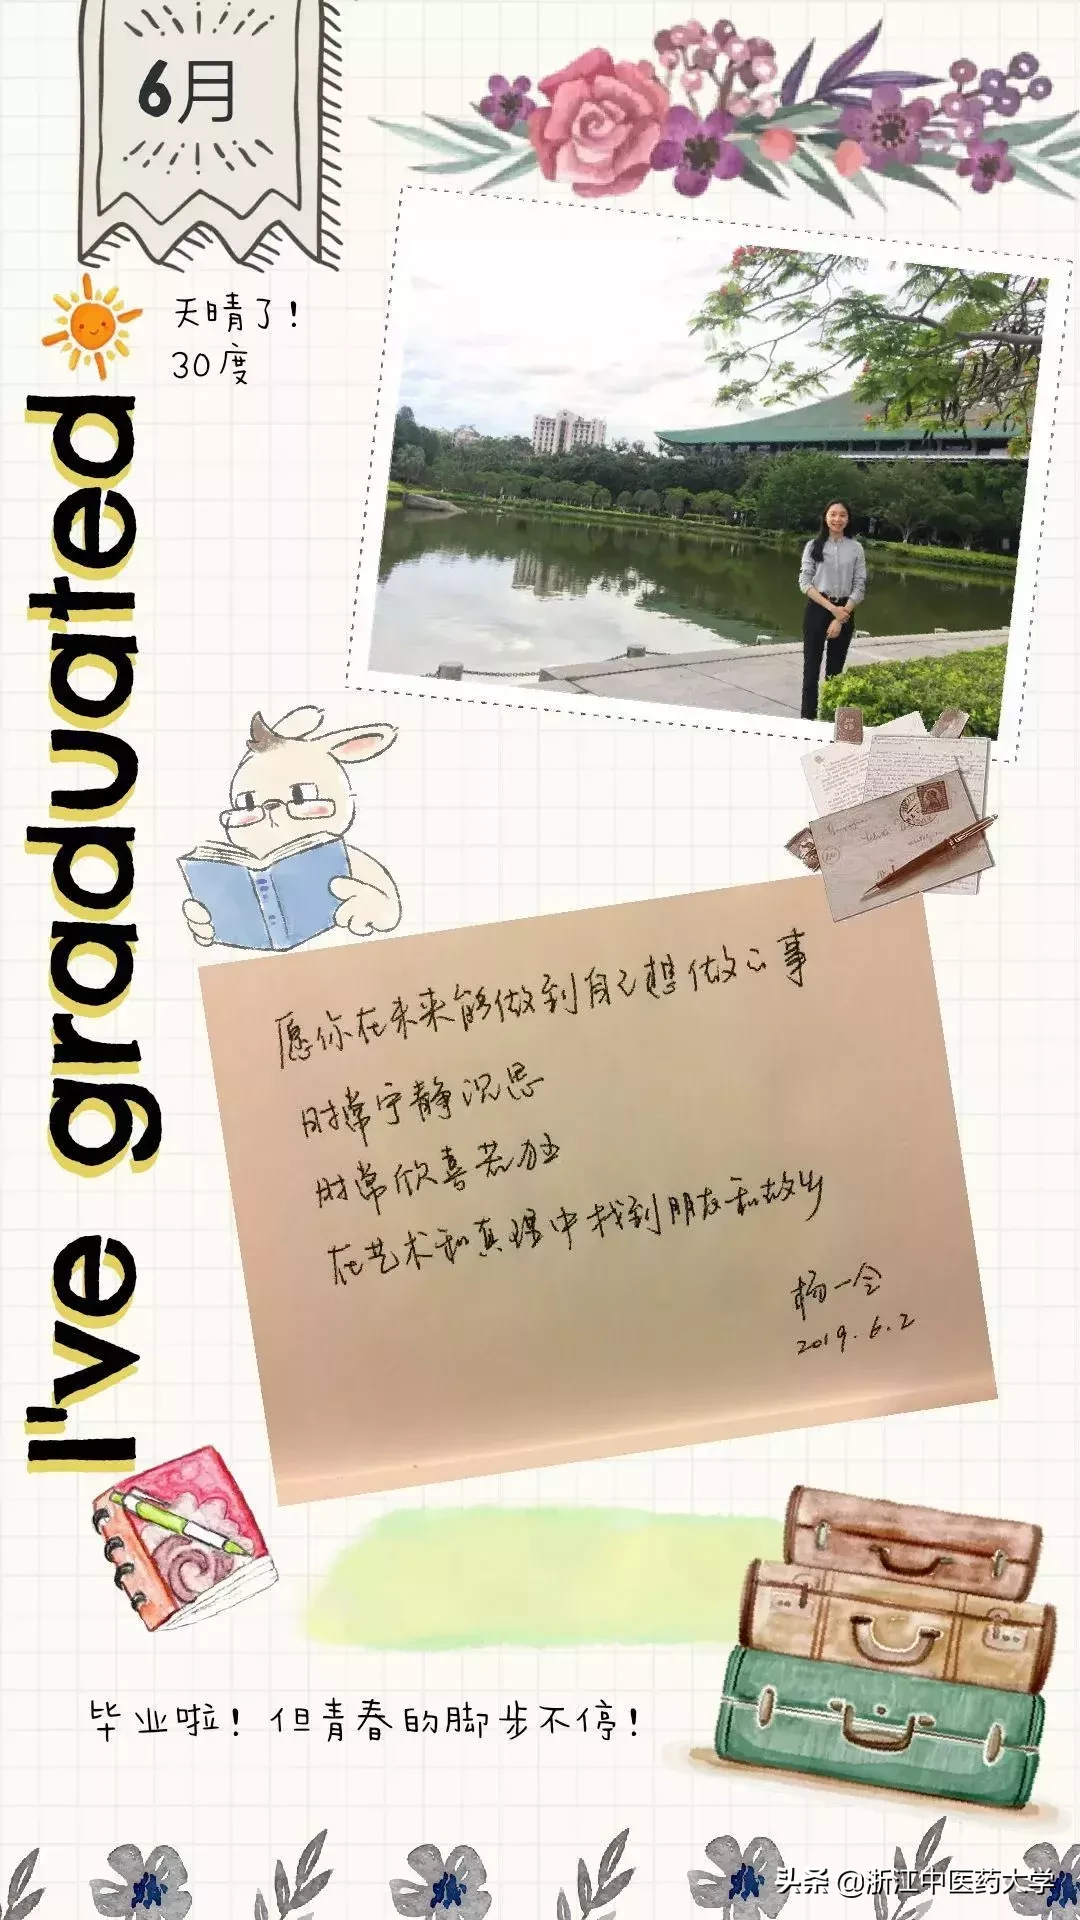 6月
天晴了！
30度
I've graduated
愿你在未来能做到自己想做的事
时常宁静沉思
时常欣喜若狂
在艺术和真理中找到朋友和故乡
杨一会
2019.6.2
毕业啦！但青春的脚步不停！
头条@浙江中医药大学